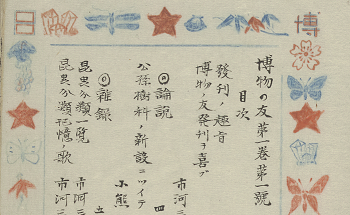 博物の友第一卷第一號
目次
發刊ノ趣旨
博物ノ友發刊ヲ喜ブ
市河三
◎論説
公孫樹科ノ新設ニツイテ
四
小熊
◎雜録
五
昆虫分類一覧
市河三
昆虫分類記憶ノ歌
市河三
博
日